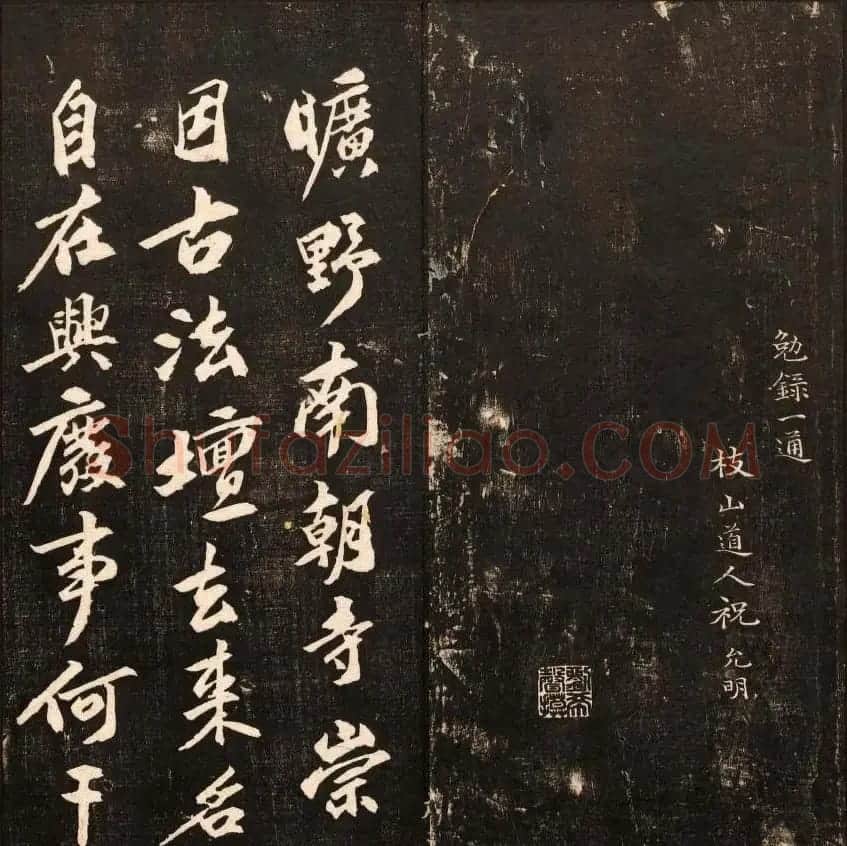 勉錄一通
枝山道人祝允明
曠野南朝寺崇
因古法壇去來名
自在興廢事何干
Shufaziliao.COM